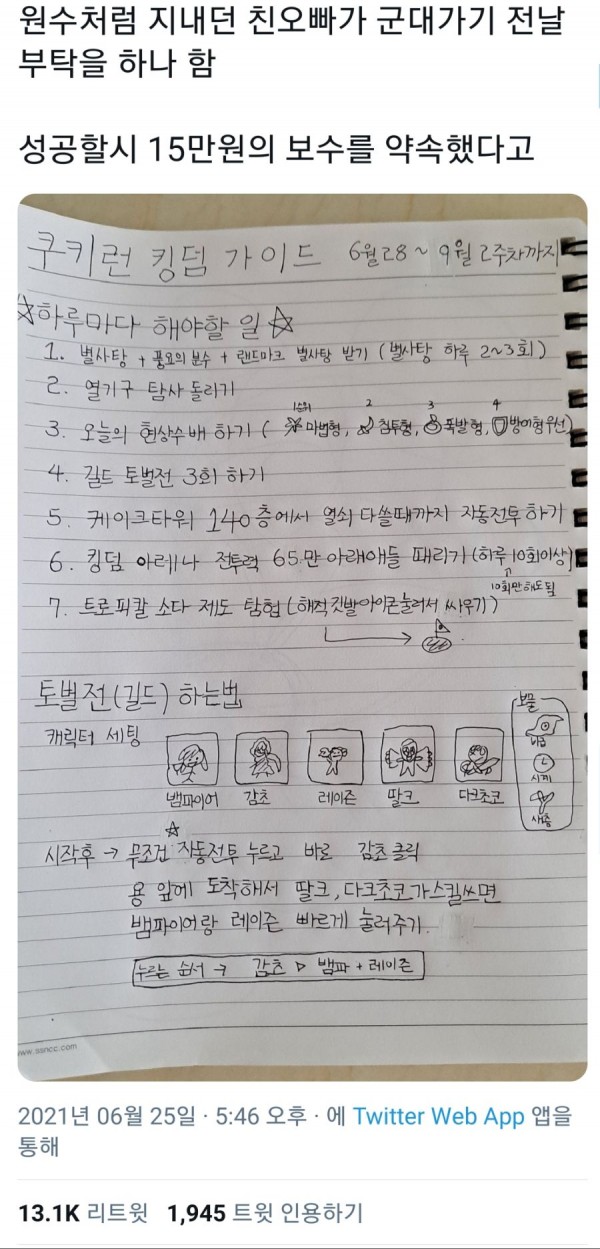 원수처럼 지내던 친오빠가 군대가기 전날
부탁을 하나 함
성공할시 15만원의 보수를 약속했다고
쿠키런 킹덤 가이드 6월28~9월 2주차까지
☆하루마다 해야할 일☆
1. 별사탕 + 풍요의 분수 + 랜드마크 별사탕 받기 (별사탕 하루 2~3회)
2. 열기구 탐사 돌리기
1순위 2 3 4
3. 오늘의 현상수배 하기 ( 마법형, 침투형, 폭발형, 방어형우선)
4. 길드 토벌전 3회 하기
5. 케이크타워 140층에서 열쇠 다쓸때까지 자동전투 하기
6. 킹덤 아레나 전투력 65만 아래애들 때리기 (하루 10회이상)
10회만해도됨
7. 트로피칼 소다 제도 탐험 (해적깃발아이콘눌러서 싸우기)
토벌전(길드) 하는법
보물
캐릭터 세팅
뱀파이어 감초 레이즌 딸크 다크초코
시계
시작후 → 무조건 ☆자동전투 누르고 바로 감초클릭
용 앞에 도착해서 딸크, 다크초코가스킬쓰면
뱀파이어랑 레이즌 빠르게 눌러주기.
누르는 순서 → 감초 ▷ 뱀파 + 레이즌
www.ssncc.com
2021년 06월 25일 · 5:46 오후 · 에 Twitter Web App 앱을
통해
13.1K 리트윗 1,945 트윗 인용하기